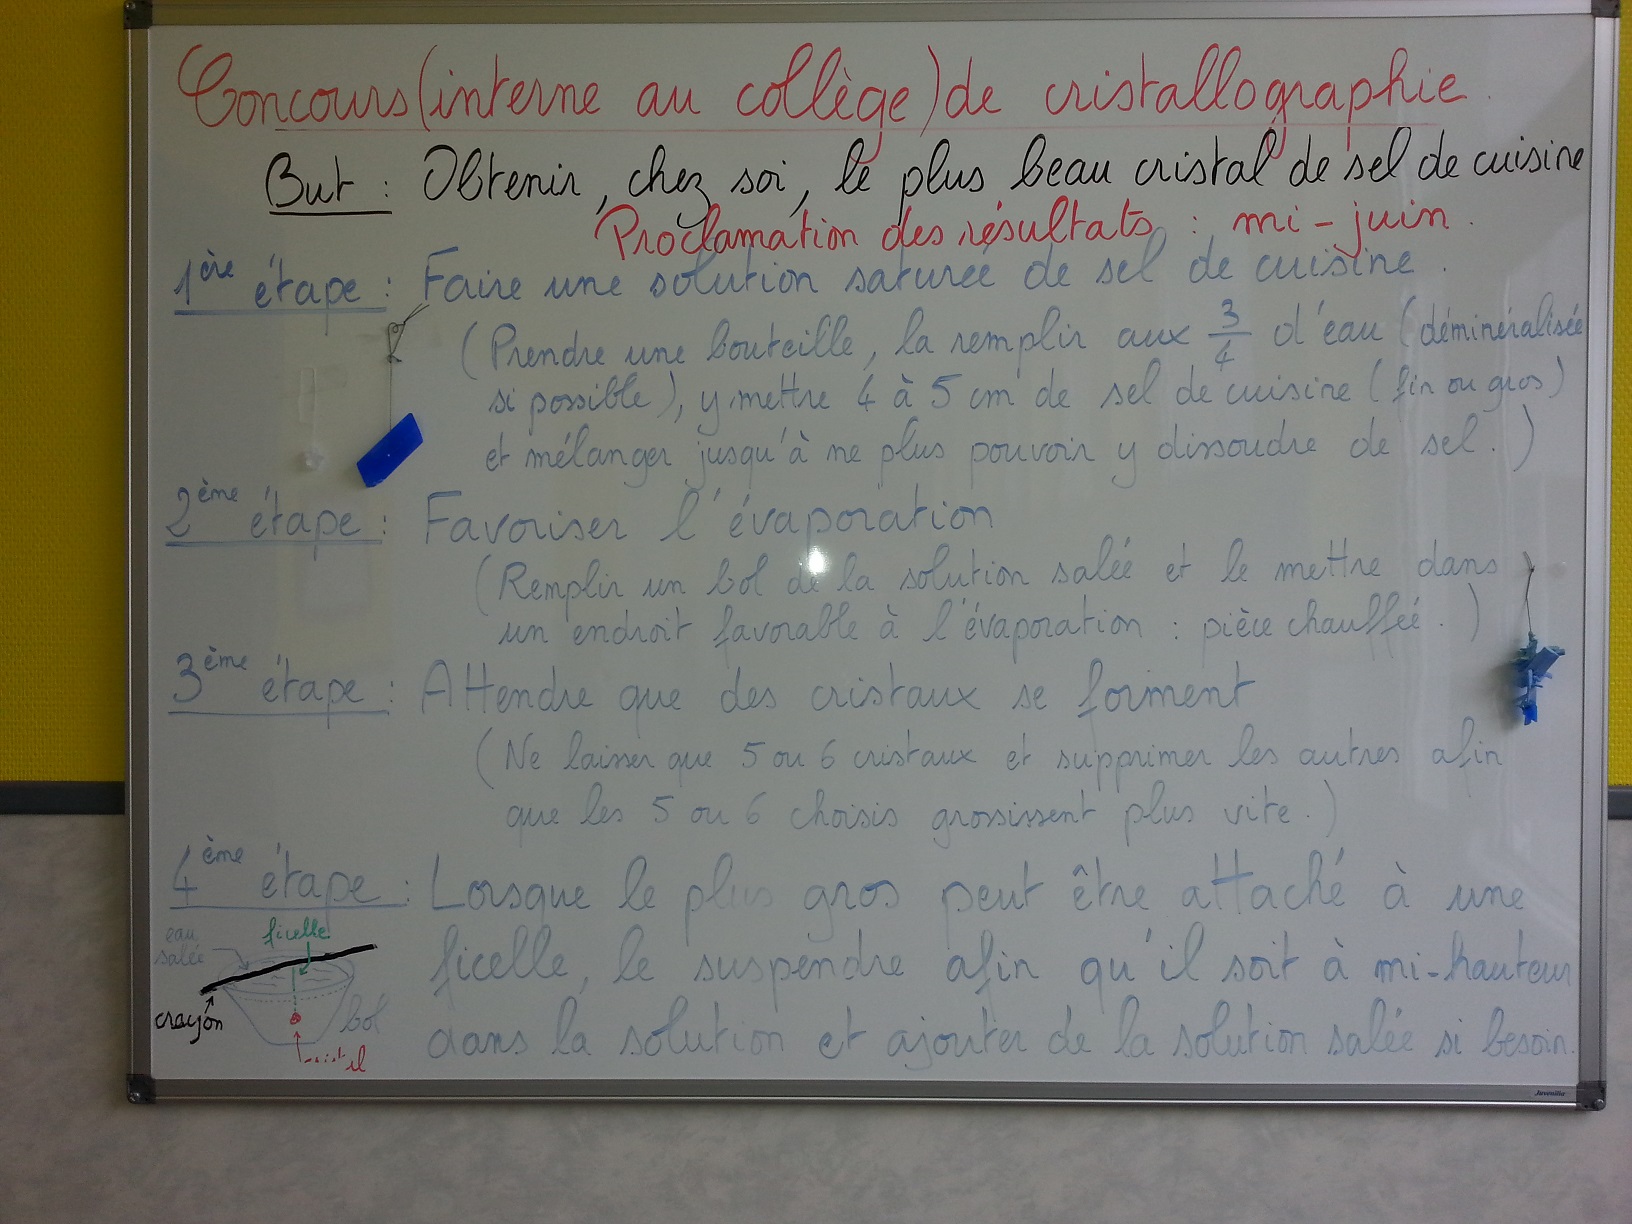 Concours (interne au collège) de cristallographie.
But : Obtenir, chez soi, le plus beau cristal de sel de cuisine
Proclamation des résultats : mi-juin.
1ère étape : Faire une solution saturée de sel de cuisine.
(Prendre une bouteille, la remplir aux 3/4 d'eau (déminéralisée
si possible), y mettre 4 à 5 cm de sel de cuisine (fin ou gros)
et mélanger jusqu'à ne plus pouvoir y dissoudre de sel.)
2ème étape : Favoriser l'évaporation
(Remplir un bol de la solution salée et le mettre dans
un endroit favorable à l'évaporation : pièce chauffée.)
3ème étape : Attendre que des cristaux se forment
(Ne laisser que 5 ou 6 cristaux et supprimer les autres afin
que les 5 ou 6 choisis grossissent plus vite.)
4ème étape : Lorsque le plus gros peut être attaché à une
ficelle, le suspendre afin qu'il soit à mi-hauteur
dans la solution et ajouter de la solution salée si besoin.
eau
salée
ficelle
crayon
bol
Juvenilia